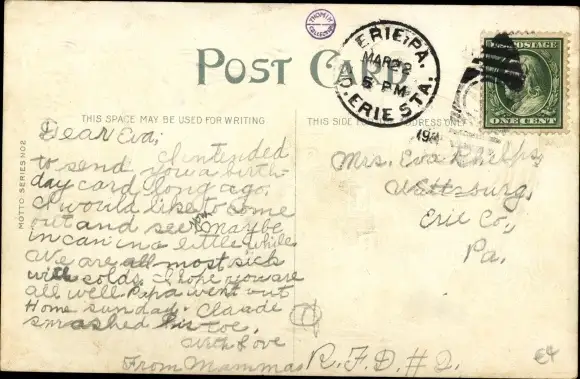 THOMIK COLLECTION
POST CARD
ERIE, PA.
MAR 22
5 PM
O. ERIE STA.
191
U.S. POSTAGE
ONE CENT
THIS SPACE MAY BE USED FOR WRITING
THIS SIDE FOR ADDRESS ONLY
MOTTO SERIES NO 2
Dear Eva;
I intended
to send you a birth-
day card long ago.
I would like to come
out and see you maybe
in can in a little while
We are all most sick
with colds. I hope you are
all well Papa went out
Home sunday. Claude
smashed his toe.
With Love
From Mamma
Mrs. Eva Phelps,
Wattsburg,
Erie Co,
Pa,
R.F.D. #2.